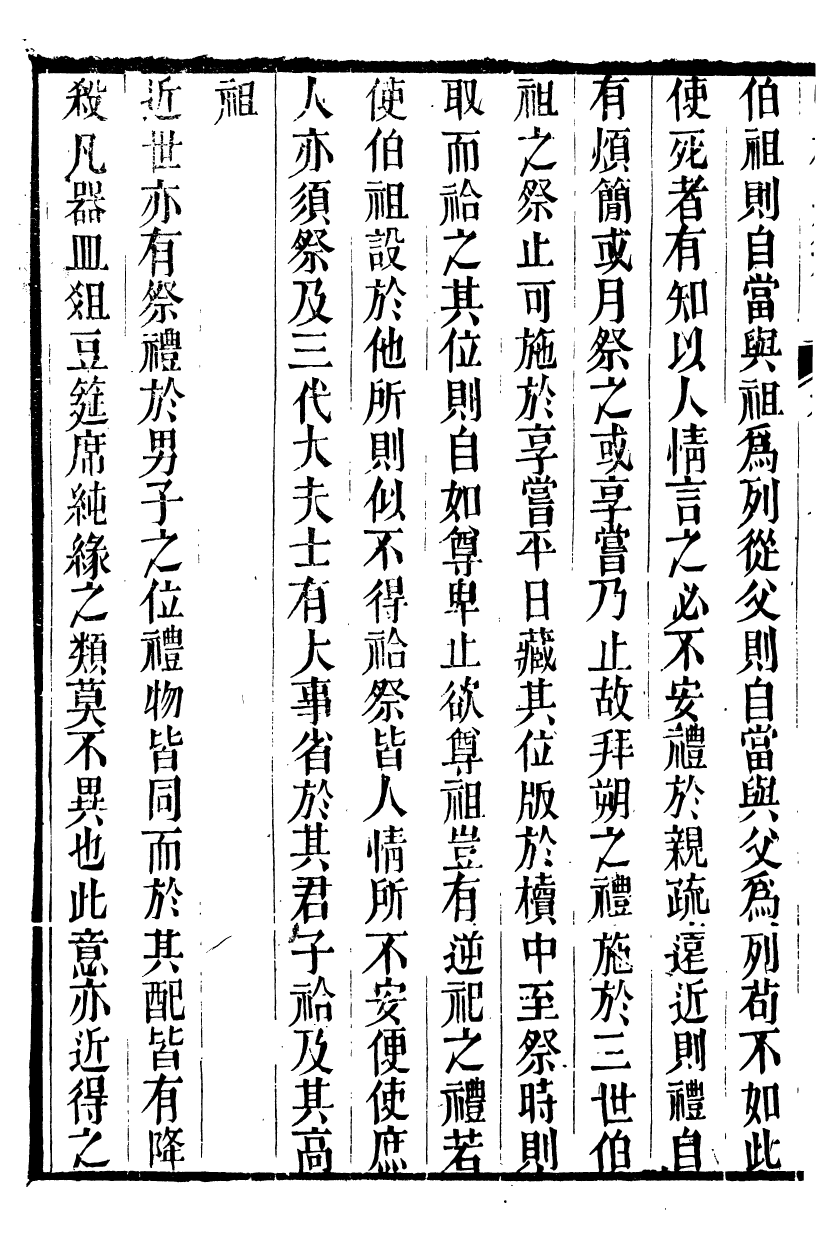 伯祖則自當與祖爲列從父則自當與父爲列苟不如此
使死者有知以人情言之必不安禮於親疏遠近則禮自
有煩簡或月祭之或享嘗乃止故拜朔之禮施於三世伯
祖之祭止可施於享嘗平日藏其位版於櫝中至祭時則
取而祫之其位則自如尊卑止欲尊祖豈有逆祀之禮若
使伯祖設於他所則似不得祫祭皆人情所不安便使庶
人亦須祭及三代大夫士有大事省於其君子祫及其高
祖
近世亦有祭禮於男子之位禮物皆同而於其配皆有降
殺凡器皿俎豆筵席純緣之類莫不異也此意亦近得之